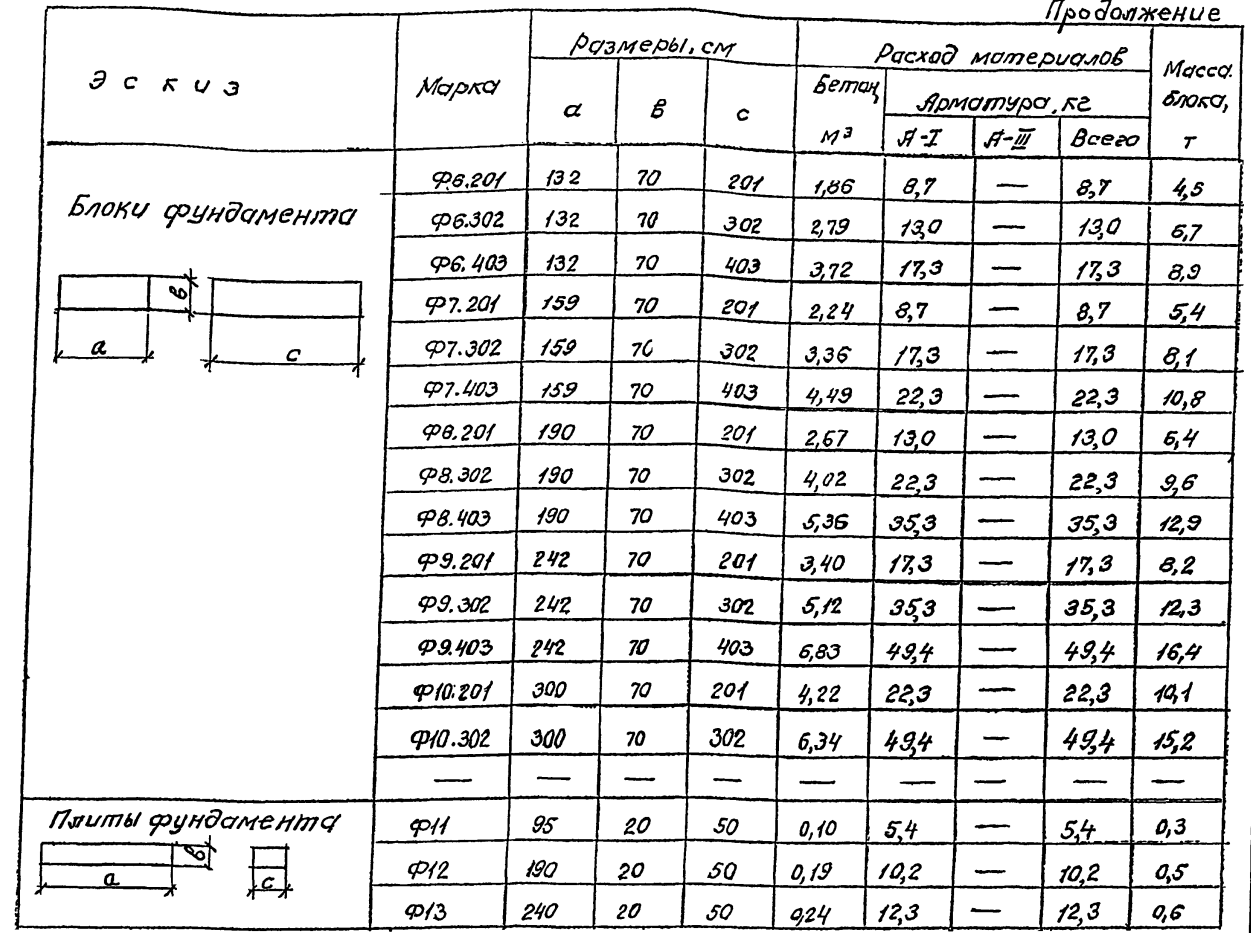 Продолжение
Эскиз Марка Размеры, см Расход материалов Масса блока, т
а в с Бетон, м³ Арматура, кг
А-I А-III Всего
Блоки фундамента
а в с
Ф6.201 132 70 201 1,86 8,7 — 8,7 4,5
Ф6.302 132 70 302 2,79 13,0 — 13,0 6,7
Ф6.403 132 70 403 3,72 17,3 — 17,3 8,9
Ф7.201 159 70 201 2,24 8,7 — 8,7 5,4
Ф7.302 159 70 302 3,36 17,3 — 17,3 8,1
Ф7.403 159 70 403 4,49 22,3 — 22,3 10,8
Ф8.201 190 70 201 2,67 13,0 — 13,0 6,4
Ф8.302 190 70 302 4,02 22,3 — 22,3 9,6
Ф8.403 190 70 403 5,36 35,3 — 35,3 12,9
Ф9.201 242 70 201 3,40 17,3 — 17,3 8,2
Ф9.302 242 70 302 5,12 35,3 — 35,3 12,3
Ф9.403 242 70 403 6,83 49,4 — 49,4 16,4
Ф10.201 300 70 201 4,22 22,3 — 22,3 10,1
Ф10.302 300 70 302 6,34 49,4 — 49,4 15,2
— — — — — — — — —
Плиты фундамента
а в с
Ф11 95 20 50 0,10 5,4 — 5,4 0,3
Ф12 190 20 50 0,19 10,2 — 10,2 0,5
Ф13 240 20 50 0,24 12,3 — 12,3 0,6